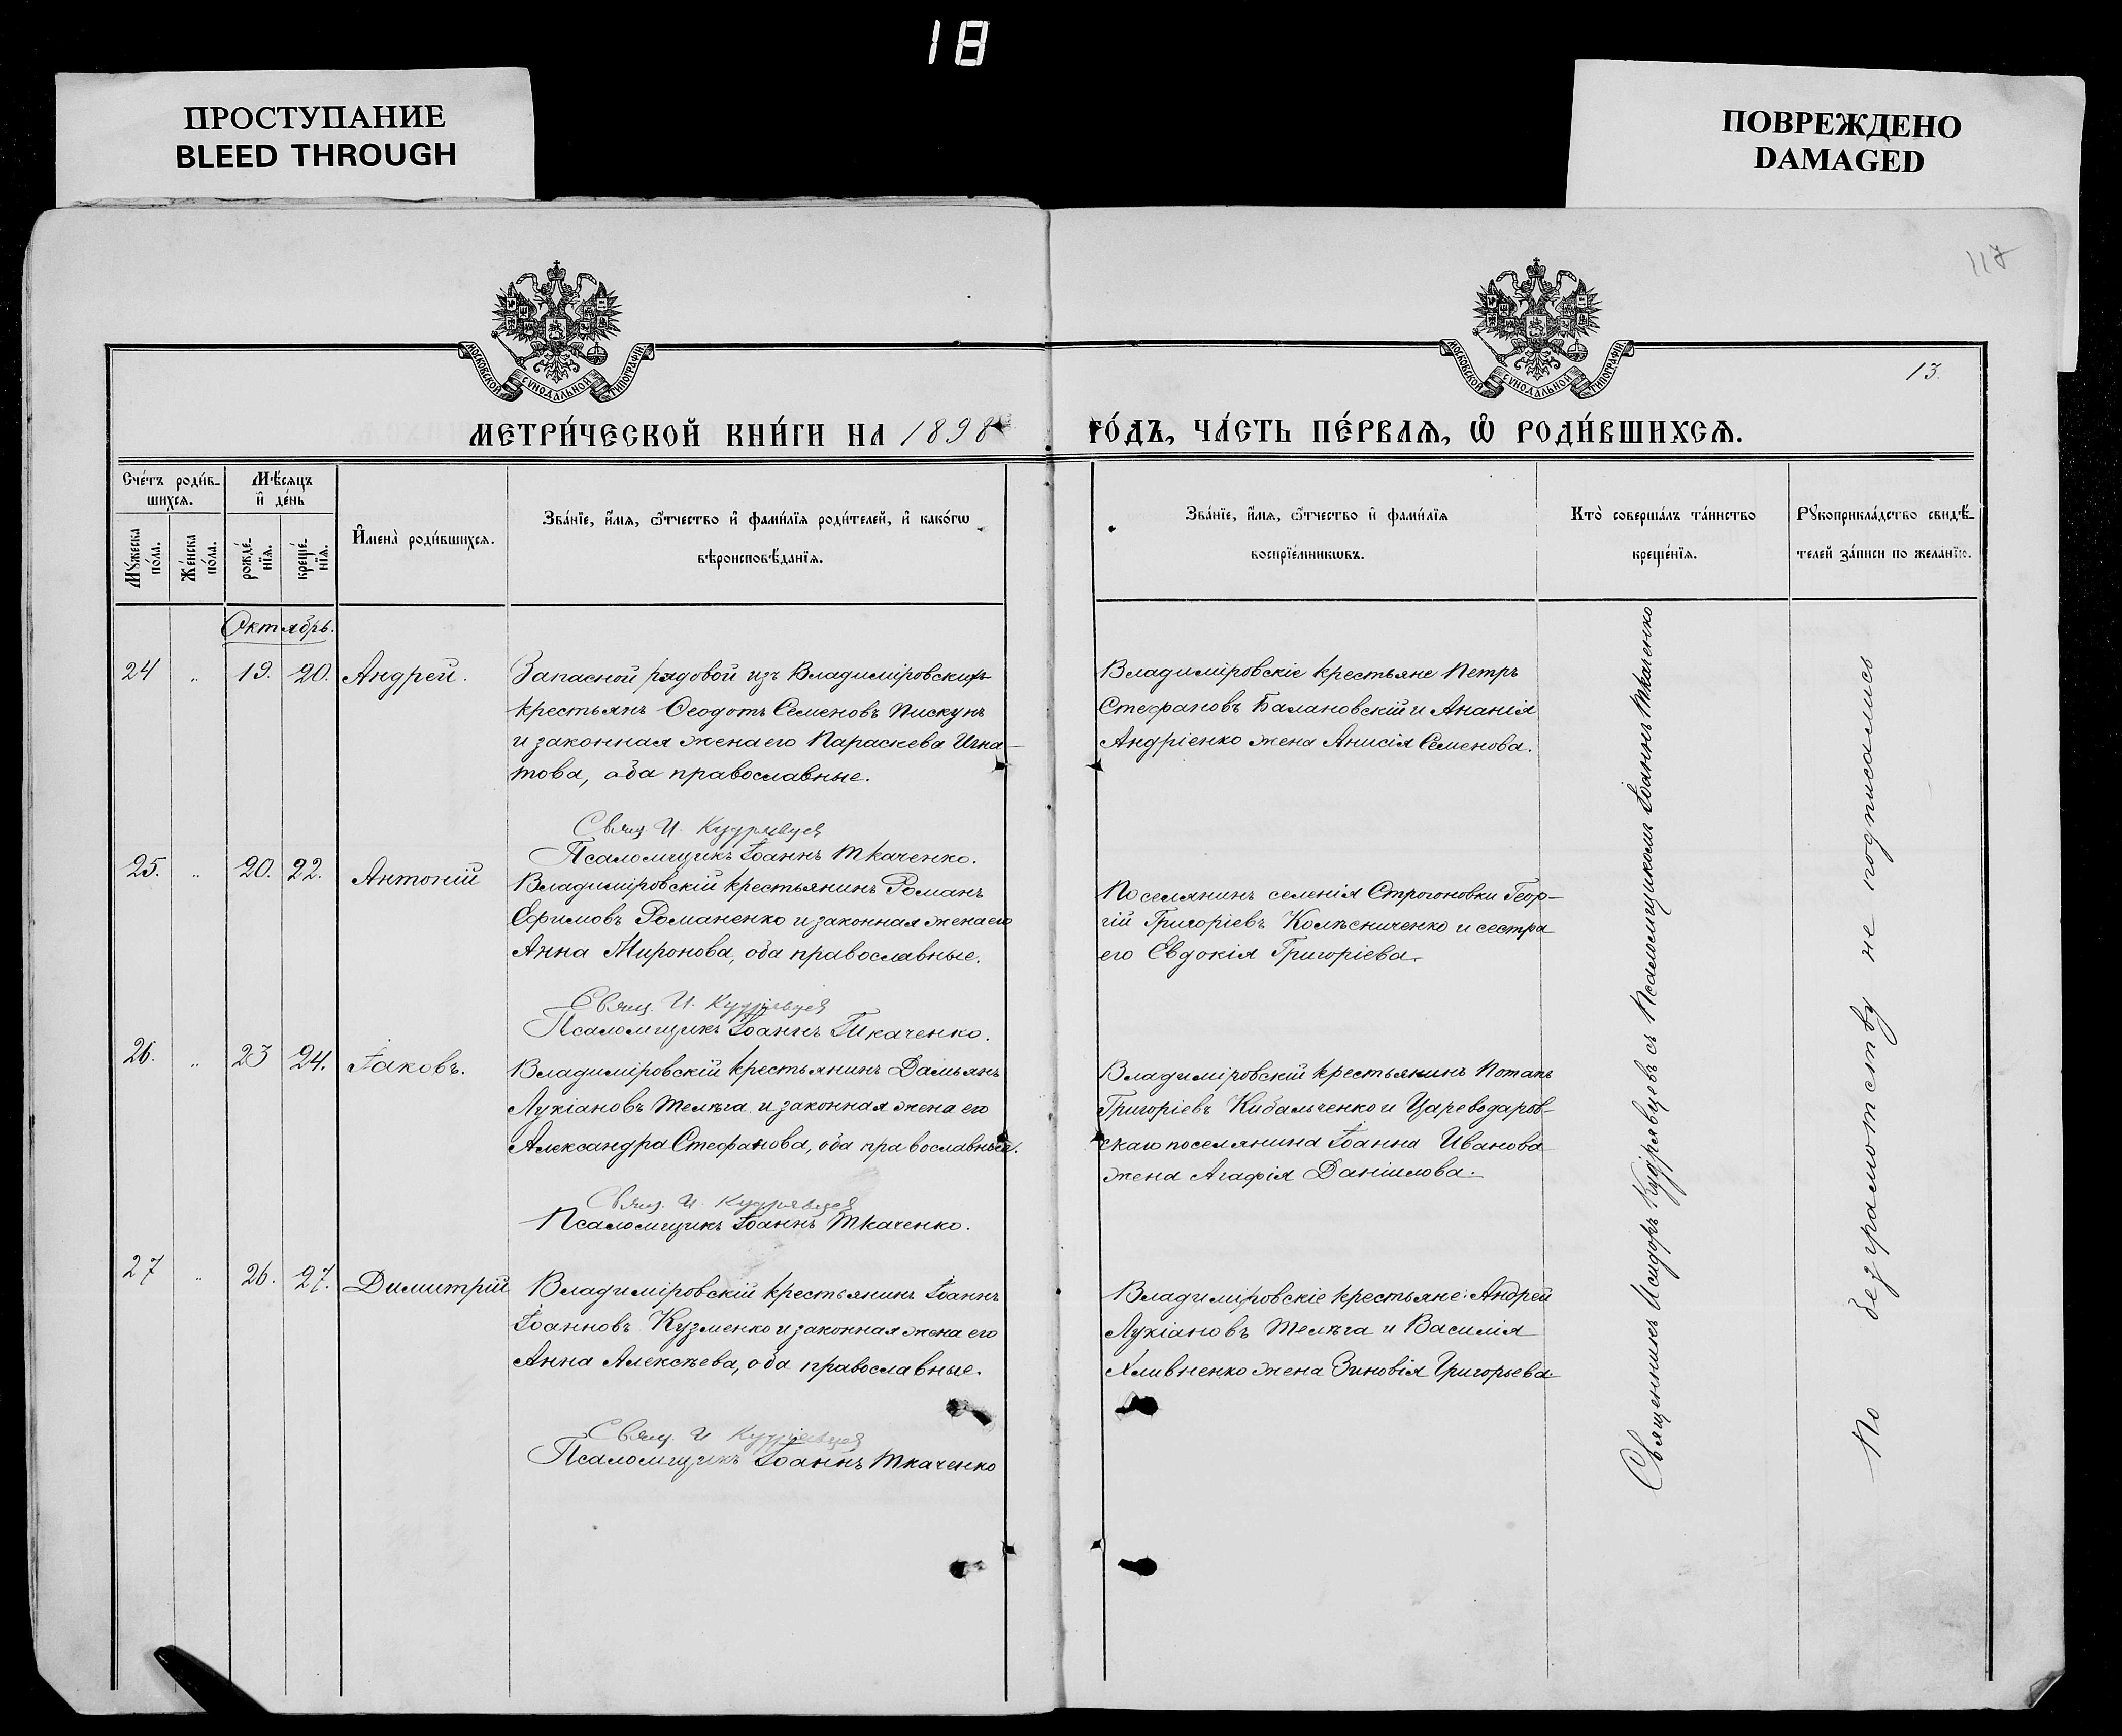 18
ПРОСТУПАНИЕ
BLEED THROUGH
ПОВРЕЖДЕНО
DAMAGED
117
13.
МОСКОВСКОЙ СѴНОДАЛЬНОЙ ТИПОГРАФІИ
МОСКОВСКОЙ СѴНОДАЛЬНОЙ ТИПОГРАФІИ
МЕТРИ́ЧЕСКОЙ КНИ́ГИ НА 1898 ГО́ДЪ, ЧА́СТЬ ПЕ́РВАѦ, Ѡ҆ РОДИ́ВШИХСѦ.
Сче́тъ роди́в-
шихсѧ.
Мꙋ́жеска по́ла.
Же́нска по́ла.
Мѣ́сѧцъ
и҆ де́нь
рожде́-
нїѧ.
креще́-
нїѧ.
И҆мена̀ роди́вшихсѧ.
Зва́нїе, и҆́мѧ, ѻ҆́тчество и҆ фами́лїѧ роди́телей, и҆ како́гѡ
вѣроисповѣ́данїѧ.
Зва́нїе, и҆́мѧ, ѻ҆́тчество и҆ фами́лїѧ
воспрїе́мникѡвъ.
Кто̀ соверша́лъ та́инство
креще́нїѧ.
Рꙋкоприкла́дство свидѣ́-
телей за́писи по жела́нїю.
Октябрь.
24 „ 19. 20. Андрей.
Запасной рядовой изъ Владиміровскихъ
крестьянъ Ѳеодотъ Семеновъ Пискунъ
и законная жена его Параскева Игна-
това, оба православные.
Свящ. И. Кудрявцев
Псаломщикъ Іоаннъ Ткаченко.
Владиміровскіе крестьяне Петръ
Стефановъ Балановскій и Ананія
Андріенко жена Анисія Семенова.
25. „ 20. 22. Антоній
Владиміровскій крестьянинъ Романъ
Ефимовъ Романенко и законная жена его
Анна Миронова, оба православные.
Свящ. И. Кудрявцев
Псаломщикъ Іоаннъ Ткаченко.
Поселянинъ селенія Строгоновки Геор-
гій Григоріевъ Колѣсниченко и сестра
его Евдокія Григоріева.
26. „ 23 24. Іаковъ.
Владиміровскій крестьянинъ Дамьянъ
Лукіановъ Телѣга и законная жена его
Александра Стефанова, оба православные.
Свящ. И. Кудрявцев
Псаломщикъ Іоаннъ Ткаченко.
Владиміровскій крестьянинъ Потапъ
Григоріевъ Кибальченко и Цареводаров-
скаго поселянина Іоанна Иванова
жена Агафія Даніилова.
27 „ 26. 27. Димитрій
Владиміровскій крестьянинъ Іоаннъ
Іоанновъ Кузменко и законная жена его
Анна Алексѣева, оба православные.
Свящ. И Кудрявцев
Псаломщикъ Іоаннъ Ткаченко
Владиміровскіе крестьяне: Андрей
Лукіановъ Телѣга и Василія
Хливненко жена Зиновія Григорьева.
Священникъ Исидоръ Кудрявцевъ съ Псаломщикомъ Іоанномъ Ткаченко
По безграмотству не подписались